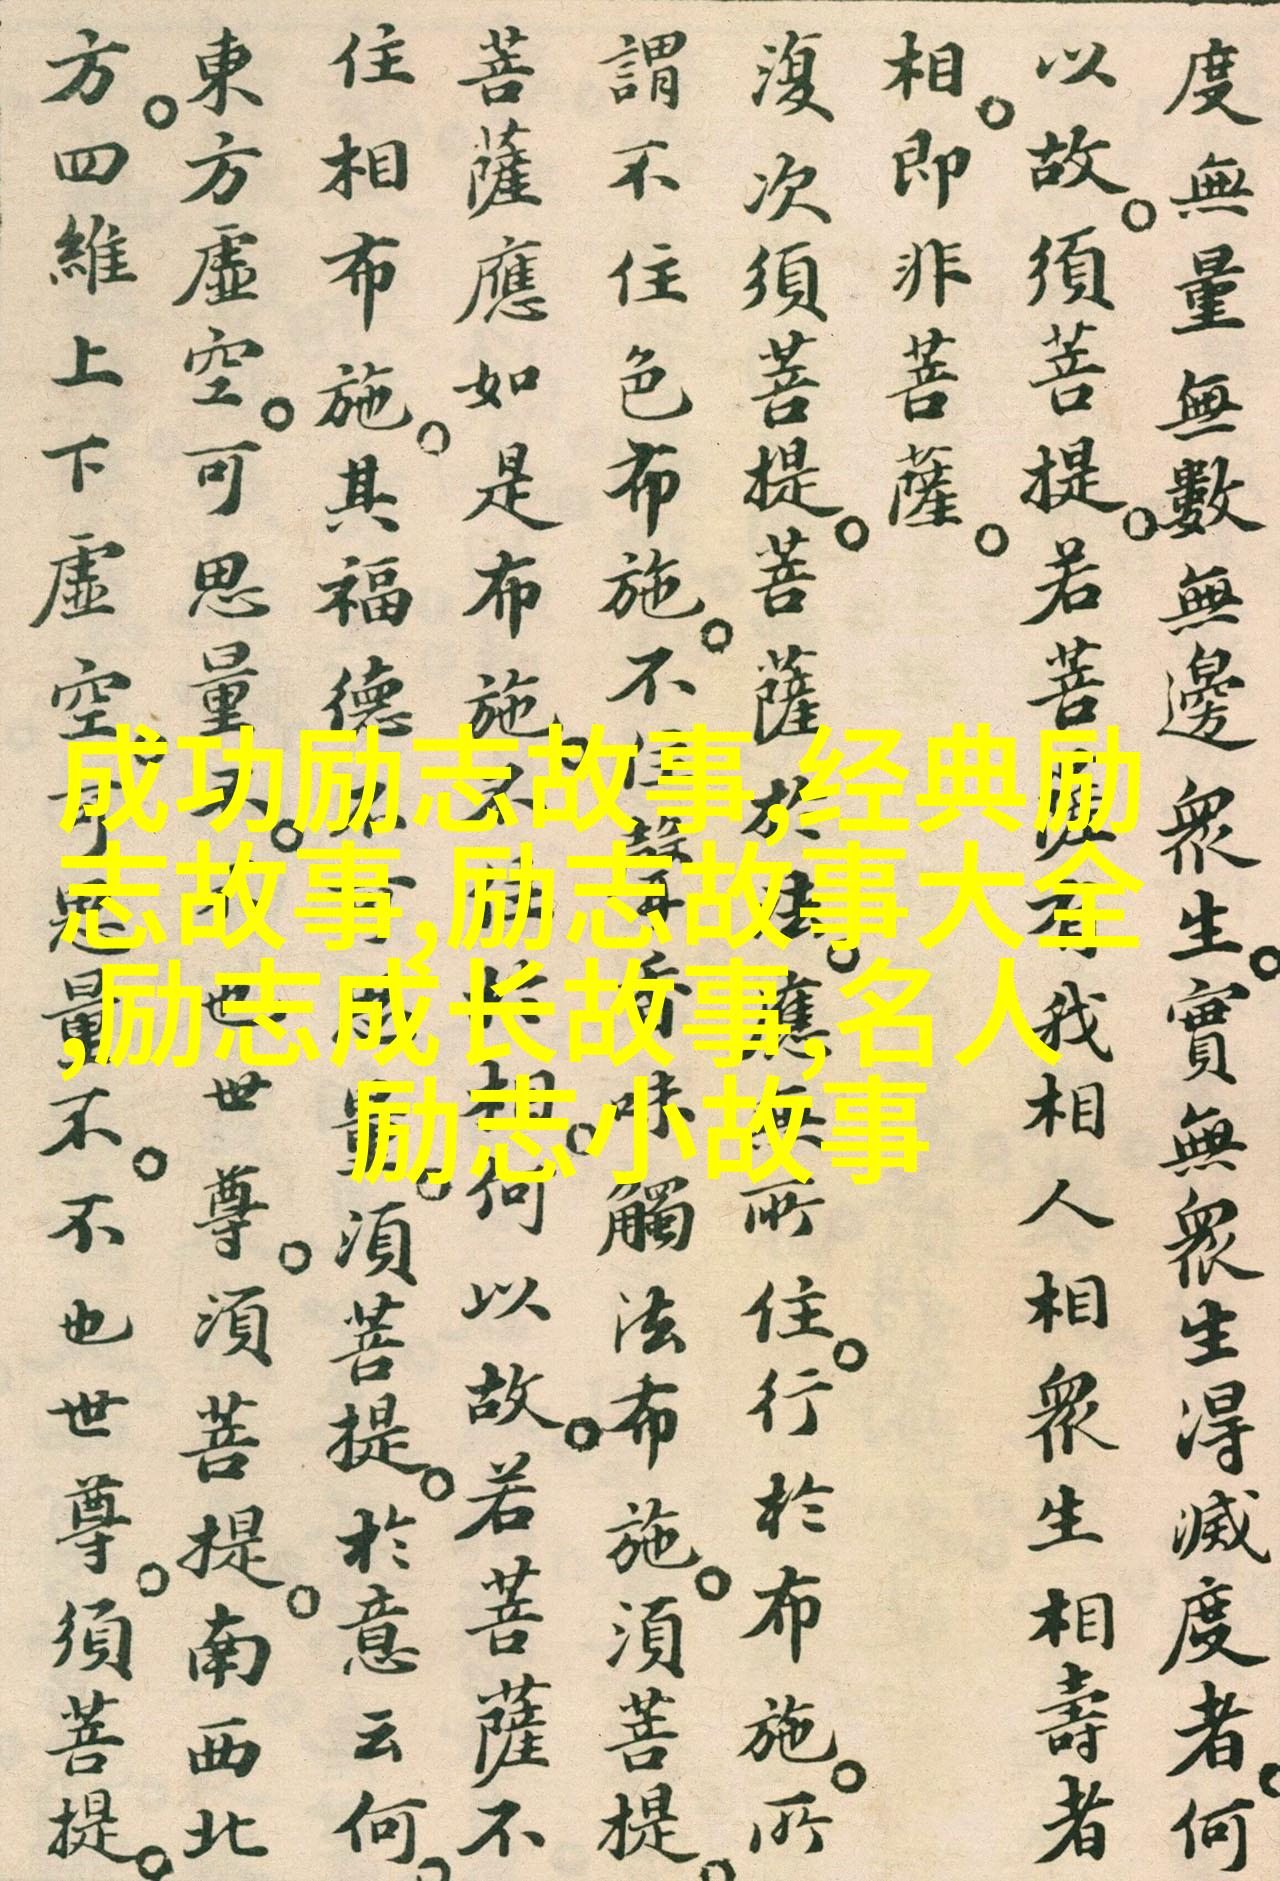 度無量無數無邊衆生。實無衆生得滅度者。何
以故。須菩提。若菩薩有我相人相衆生相壽者
相。即非菩薩。
復次須菩提。菩薩於法。應無所住。行於布施。所
謂不住色布施。不住聲香味觸法布施。須菩提。
菩薩應如是布施。不住於相。何以故。若菩薩不
住相布施。其福德不可思量。須菩提。於意云何。
東方虛空。可思量不。不也世尊。須菩提。南西北
方。四維上下虛空。可思量不。不也世尊。須菩提。
成功励志故事,经典励
志故事,励志故事大全
,励志成长故事,名人
励志小故事